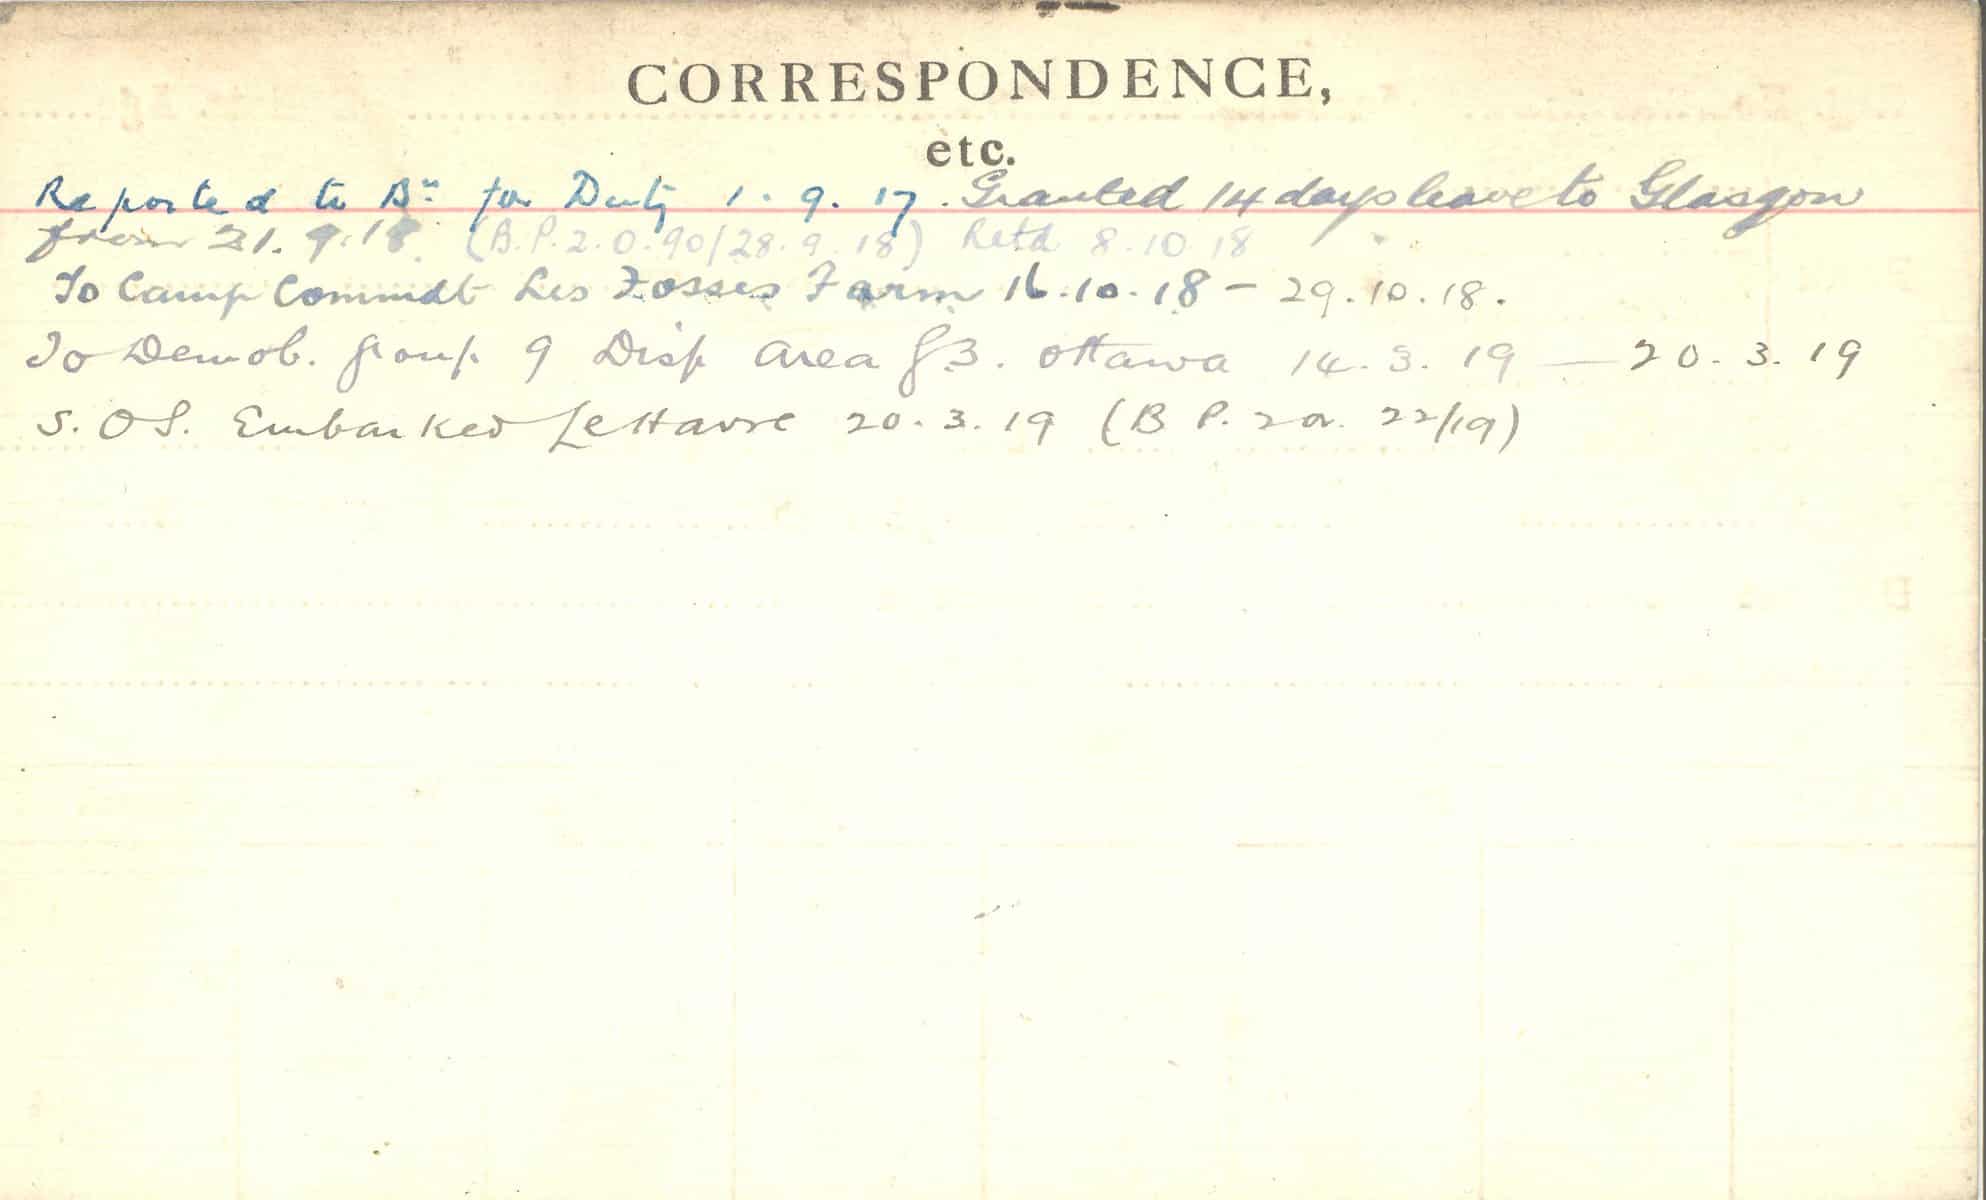 CORRESPONDENCE,
etc.
Reported to Bn for Duty 1.9.17. Granted 14 days leave to Glasgow
from 21.9.18. (B.P.2.O.90/28.9.18) Retd 8.10.18
To Camp Commdt Les Fosses Farm 16.10.18 - 29.10.18.
To Demob. Group 9 Disp area 3. Ottawa 14.3.19 — 20.3.19
S.O.S. Embarked Le Havre 20.3.19 (B P. 2 22/19)